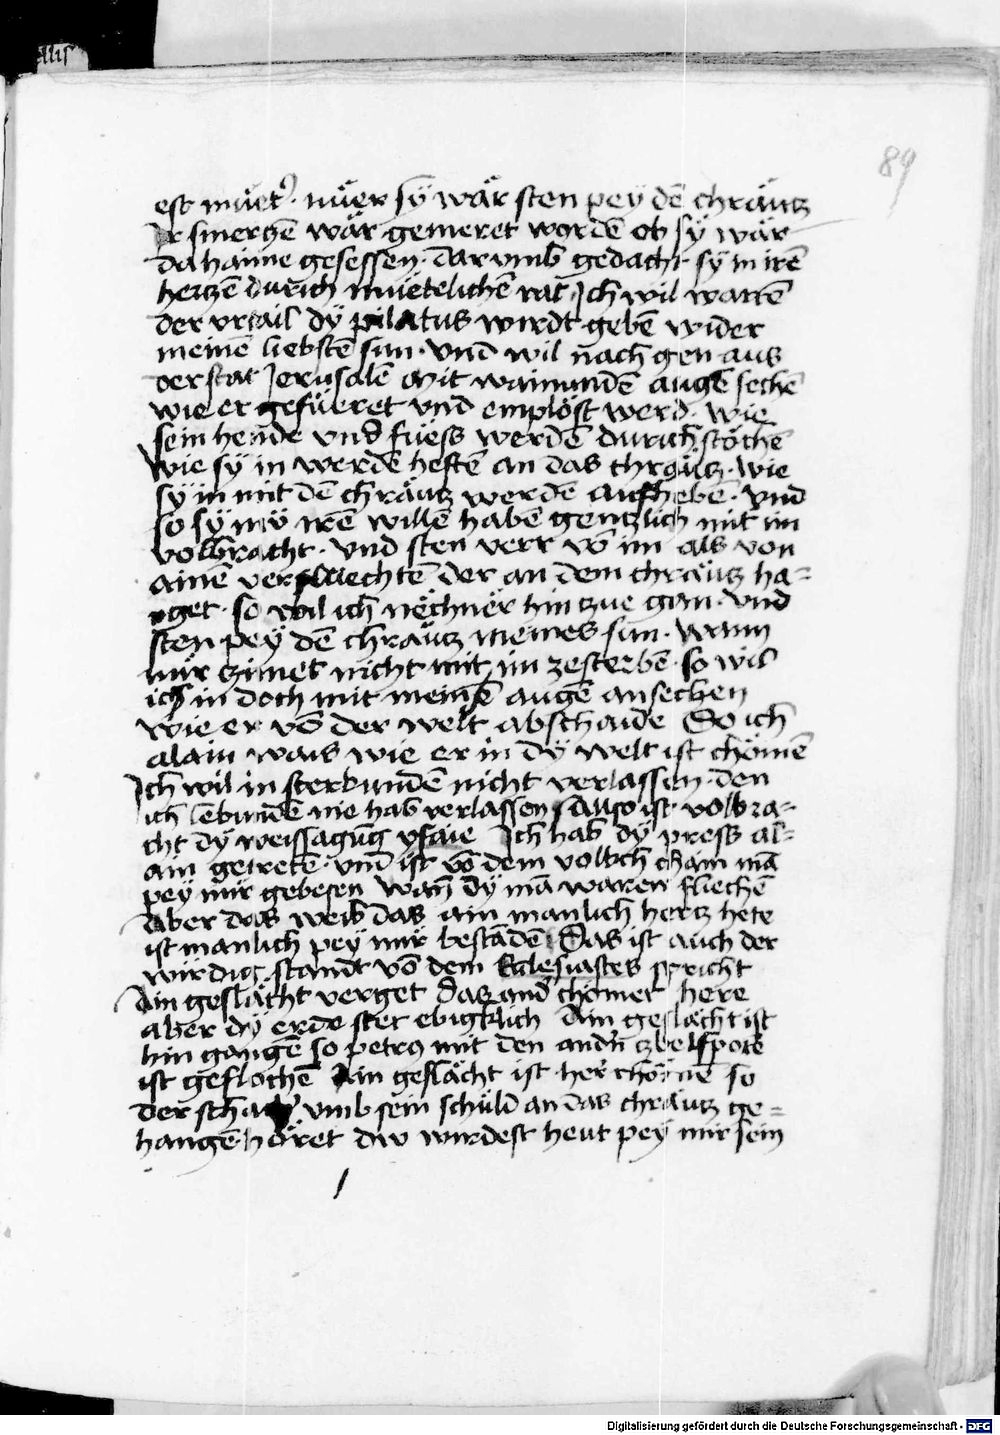 ellis
89
est müet⁹. nüer sÿ wär sten peÿ dē chräutz
Ir smerczē wär gemeret wordē ob sÿ wär
da haime gesessen. darvmb gedacht sÿ in irē
hertzē durich müetelichē rat Ich wil wartē
der vrtail dÿ pilatus wirdt gebē wider
meinē liebstē sun. vnd wil nach gen aus
der stat Jerusalē mit wainundē augē sechē
wie er gefüeret vnd emplöst werd. wie
sein hende vnd füess werdē durichstöchē
wie sÿ in werdē heftē an das chräutz. wie
sÿ in mit dē chräutz werdē aufhebē. vnd
so sÿ nü irē willē habē gentzlich mit im
volbracht. vnd sten verr vō im als von
ainē verfluechtē der an dem chräutz ha=
nget. so wil ich nëchnër hin tzue gan. vnd
sten peÿ dē chräutz meines sun. wann
mir tzimet nicht mit im ze sterbē. so wil
ich in doch mit meinē augē ansechen
wie er vō der welt abschaide So ich
alain wais wie er in dÿ welt ist chömē
Ich wil in sterbundē nicht verlassen. den
ich lebundē nie hab verlassen Also ist volbra=
cht dÿ weissagūg ysaie Ich hab dÿ press al=
ain getretē. vnd ist vō dem volkch cham mā
peÿ mir gebesen wañ dÿ mā waren fliechē
Aber das weib das ain manlich hertz hete
ist manlich peÿ mir bestādē Das ist auch der
wirdig standt vō dem Eclesiastes spricht
Ain geslächt verget das and̕ chömet here
aber dÿ erde stet ebigklich Ain geslächt ist
hin gangē so petrꝯ mit den andn̄ tzbelfpotē
ist geflochē Ain geslächt ist her chömē so
der schacher vmb sein schuld an das chräutz ge=
hangē höret dw wirdest heut peÿ mir sein
Digitalisierung gefördert durch die Deutsche Forschungsgemeinschaft - DFG